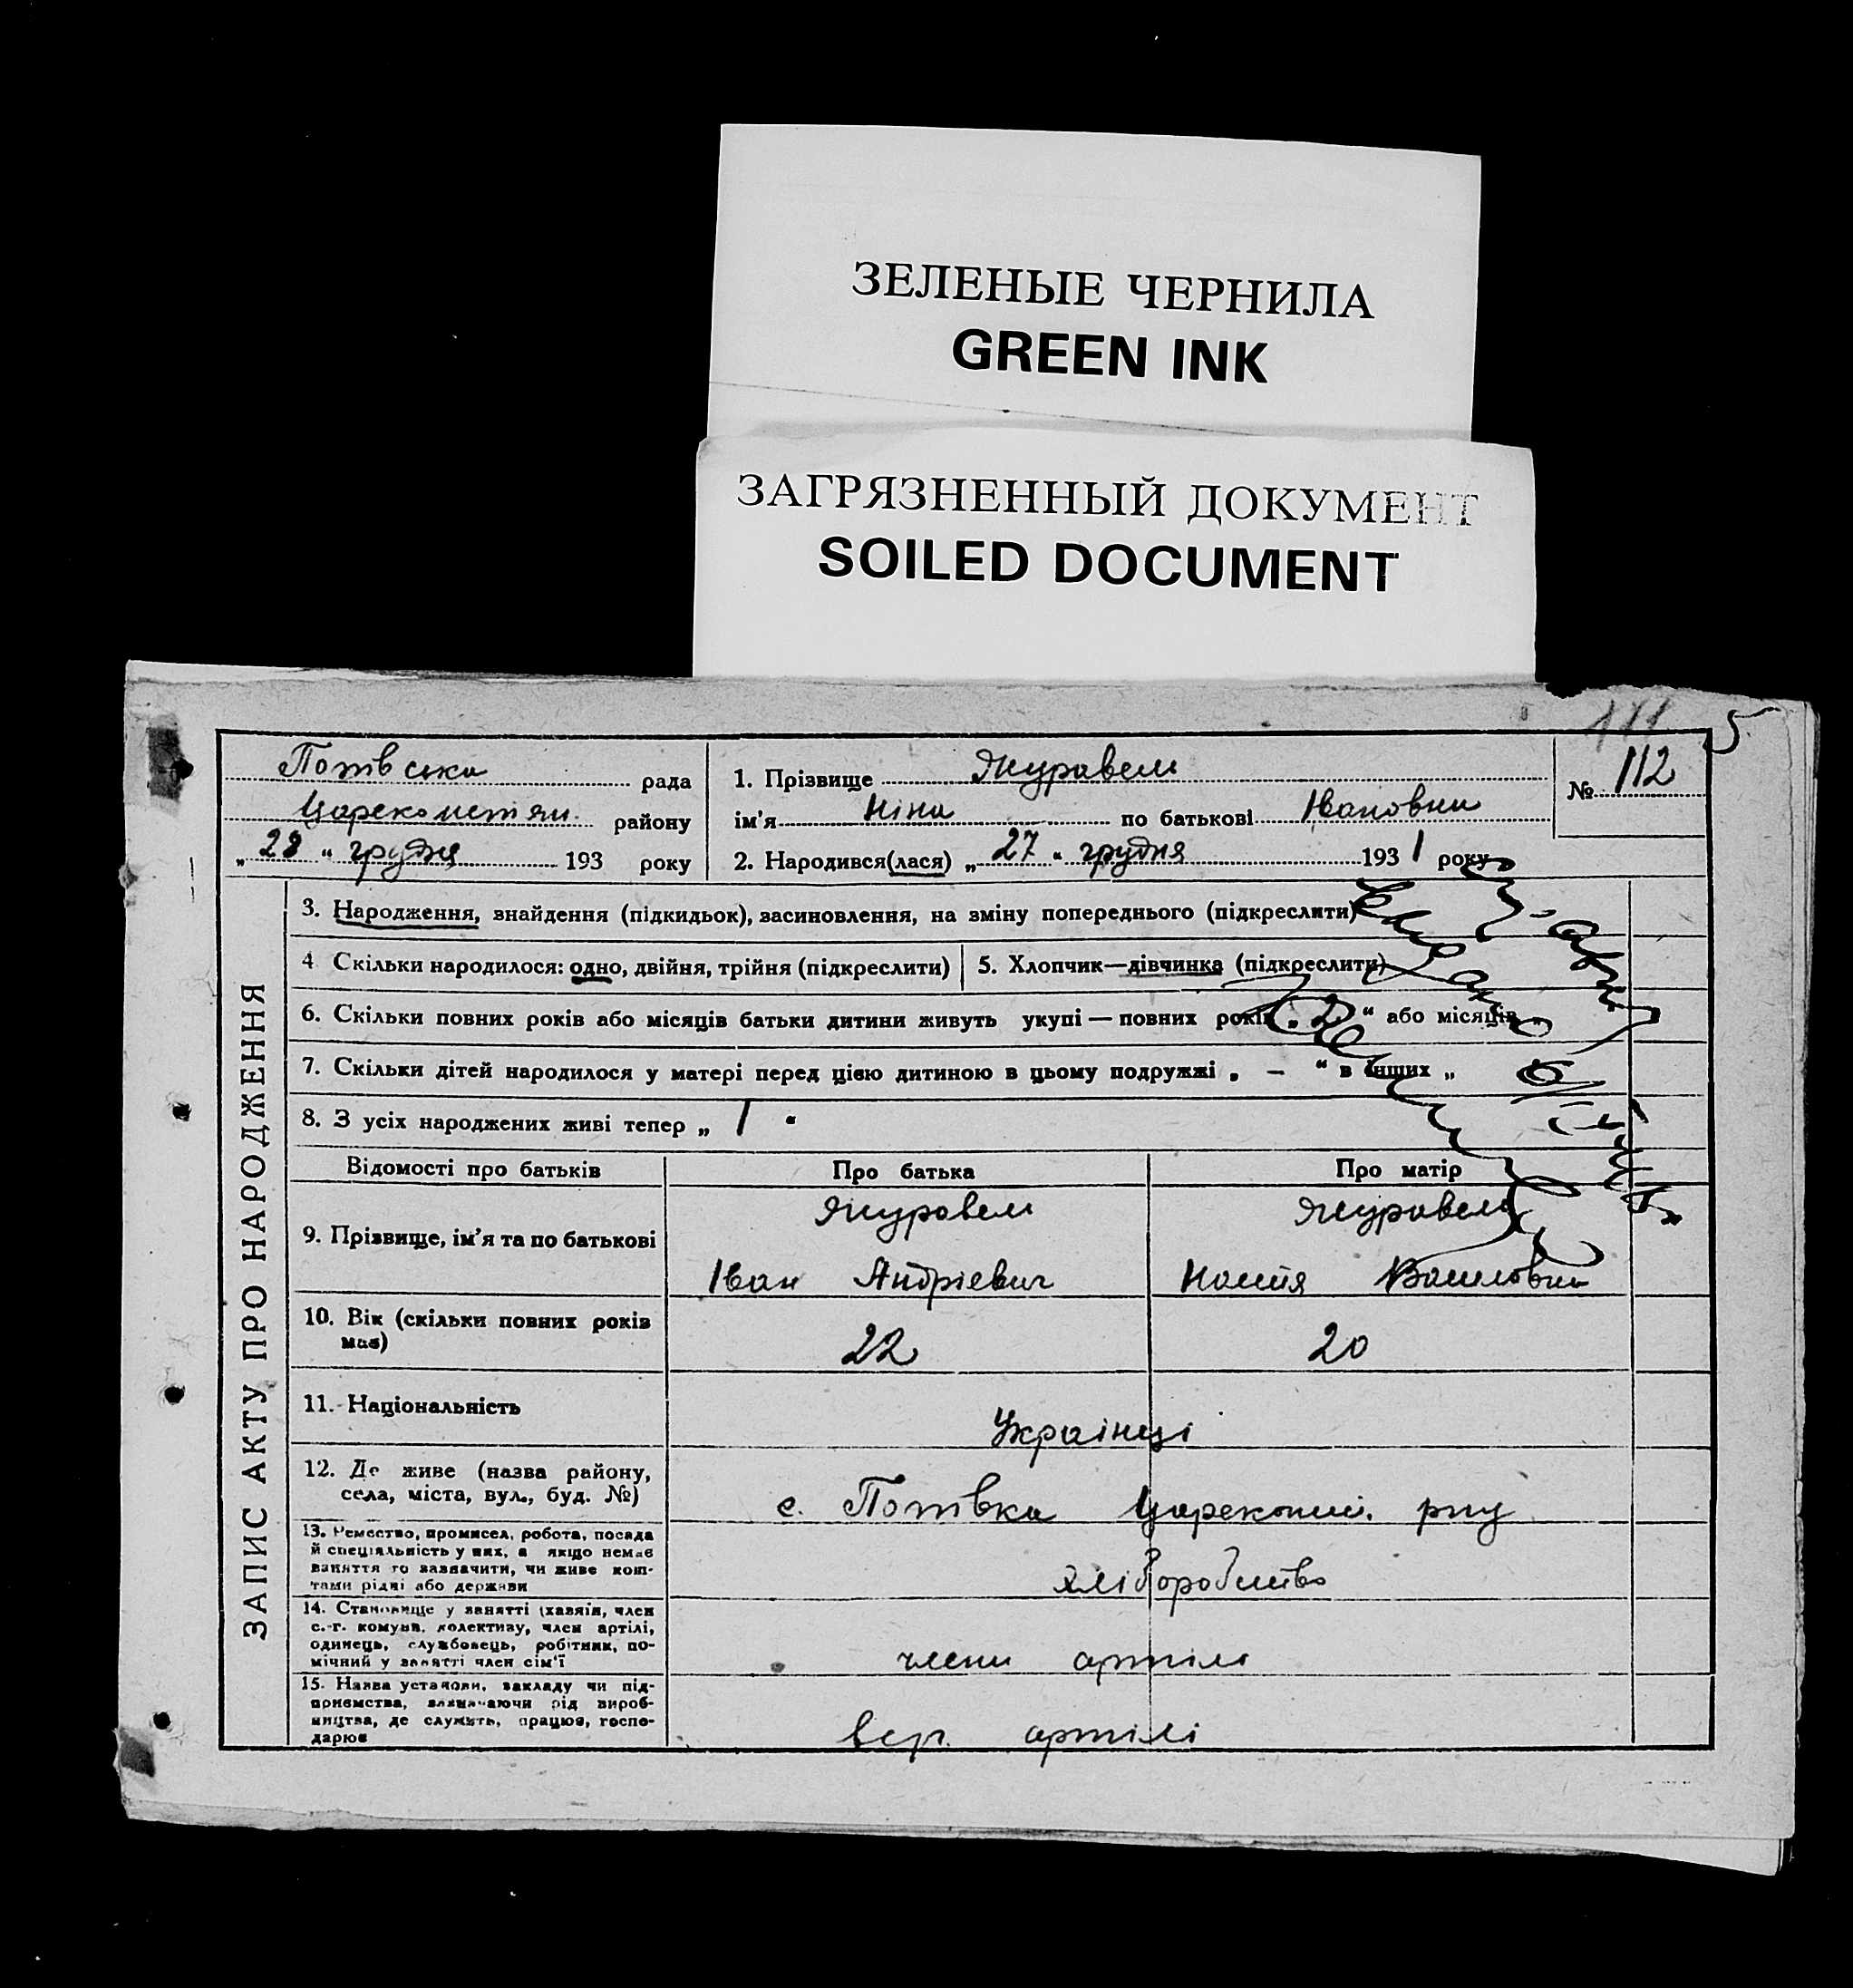 ЗЕЛЕНЫЕ ЧЕРНИЛА
GREEN INK
ЗАГРЯЗНЕННЫЙ ДОКУМЕНТ
SOILED DOCUMENT
5
рада
району
„28“ грудня 193 року
1. Прізвище Журавель
ім'я Ніна по батькові Івановна
2. Народився(лася) „27“ грудня 1931 року
№ 112
ЗАПИС АКТУ ПРО НАРОДЖЕННЯ
3. Народження, знайдення (підкидьок), засиновлення, на зміну попереднього (підкреслити)
4 Скільки народилося: одно, двійня, трійня (підкреслити)
5. Хлопчик—дівчинка (підкреслити)
6. Скільки повних років або місяців батьки дитини живуть укупі — повних років „2“ або місяців „
7. Скільки дітей народилося у матері перед цією дитиною в цьому подружжі „ — “ в інших „
8. З усіх народжених живі тепер „ 1 “
Відомості про батьків
Про батька
Про матір
9. Прізвище, ім'я та по батькові
Журавель
Іван Андрієвич
Журавель
10. Вік (скільки повних років має)
22
20
11. Національність
Українці
12. Де живе (назва району,
села, міста, вул., буд. №)
с.
13. Ремество, промисел, робота, посада
й спеціяльність у них, а якщо немає
заняття то зазначити, чи живе кош-
тами рідні або держави
хліборобство
14. Становище у занятті (хазяїн, член
с.-г. комуни, колективу, член артілі,
одинець, службовець, робітник, по-
мічний у занятті член сім'ї
члени артілі
15. Назва установи, закладу чи під-
приємства, зазначаючи рід вироб-
ництва, де служить, працює, госпо-
дарює
артілі